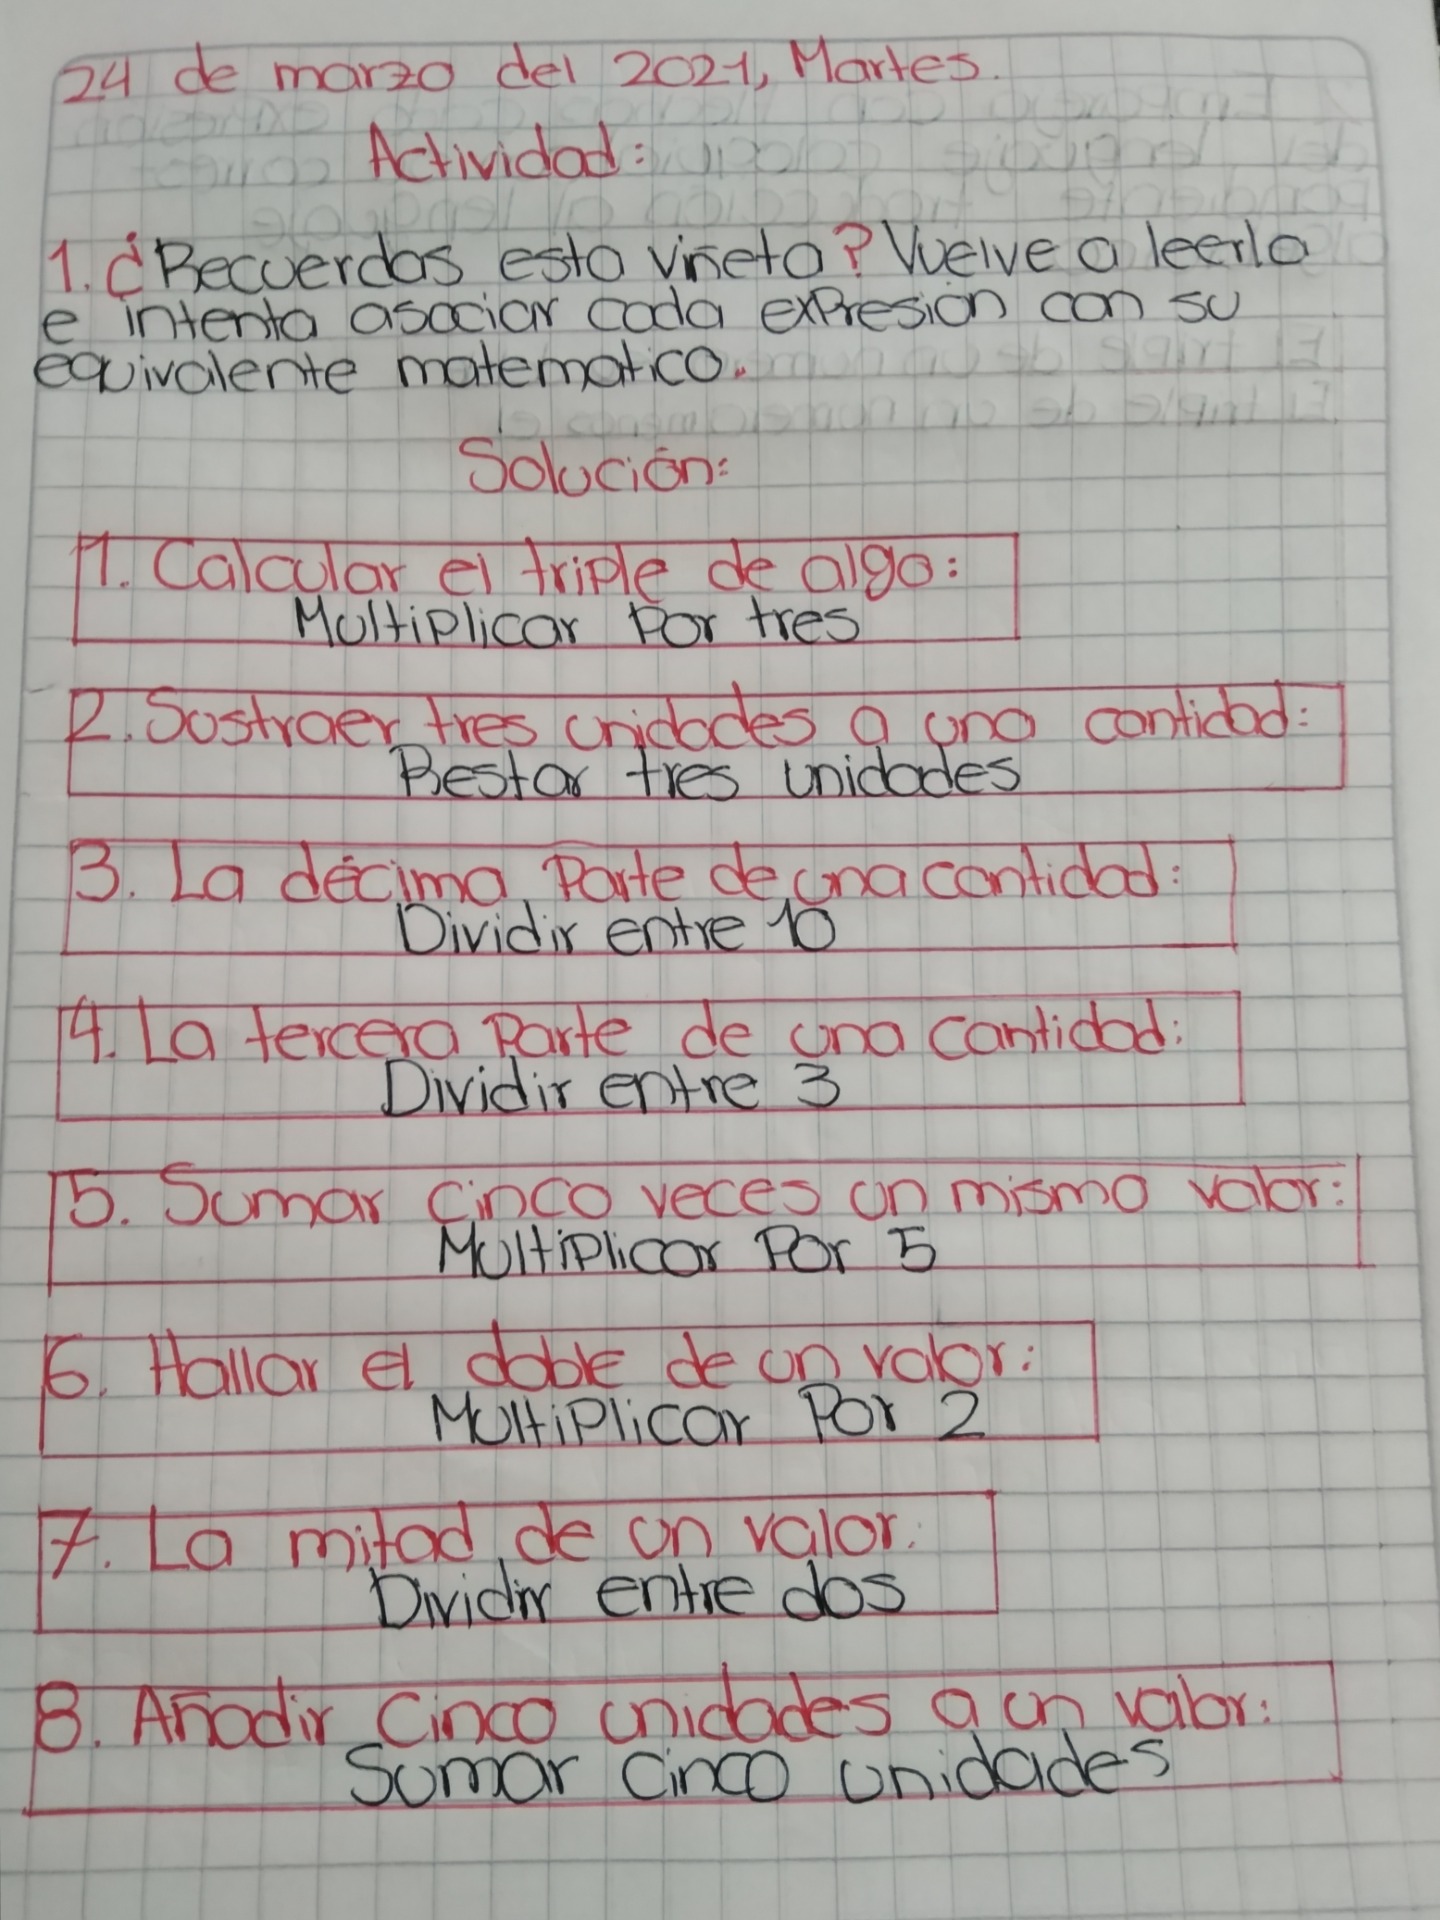 24 de marzo del 2021, Martes.
Actividad:
1. ¿Recuerdas esta viñeta? Vuelve a leerla
e intenta asociar cada expresión con su
equivalente matematico.
Solución:
1. Calcular el triple de algo:
Multiplicar por tres
2. Sustraer tres unidades a una cantidad:
Restar tres unidades
3. La décima parte de una cantidad:
Dividir entre 10
4. La tercera parte de una cantidad:
Dividir entre 3
5. Sumar cinco veces un mismo valor:
Multiplicar por 5
6. Hallar el doble de un valor:
Multiplicar por 2
7. La mitad de un valor:
Dividir entre dos
8. Añadir cinco unidades a un valor:
Sumar cinco unidades